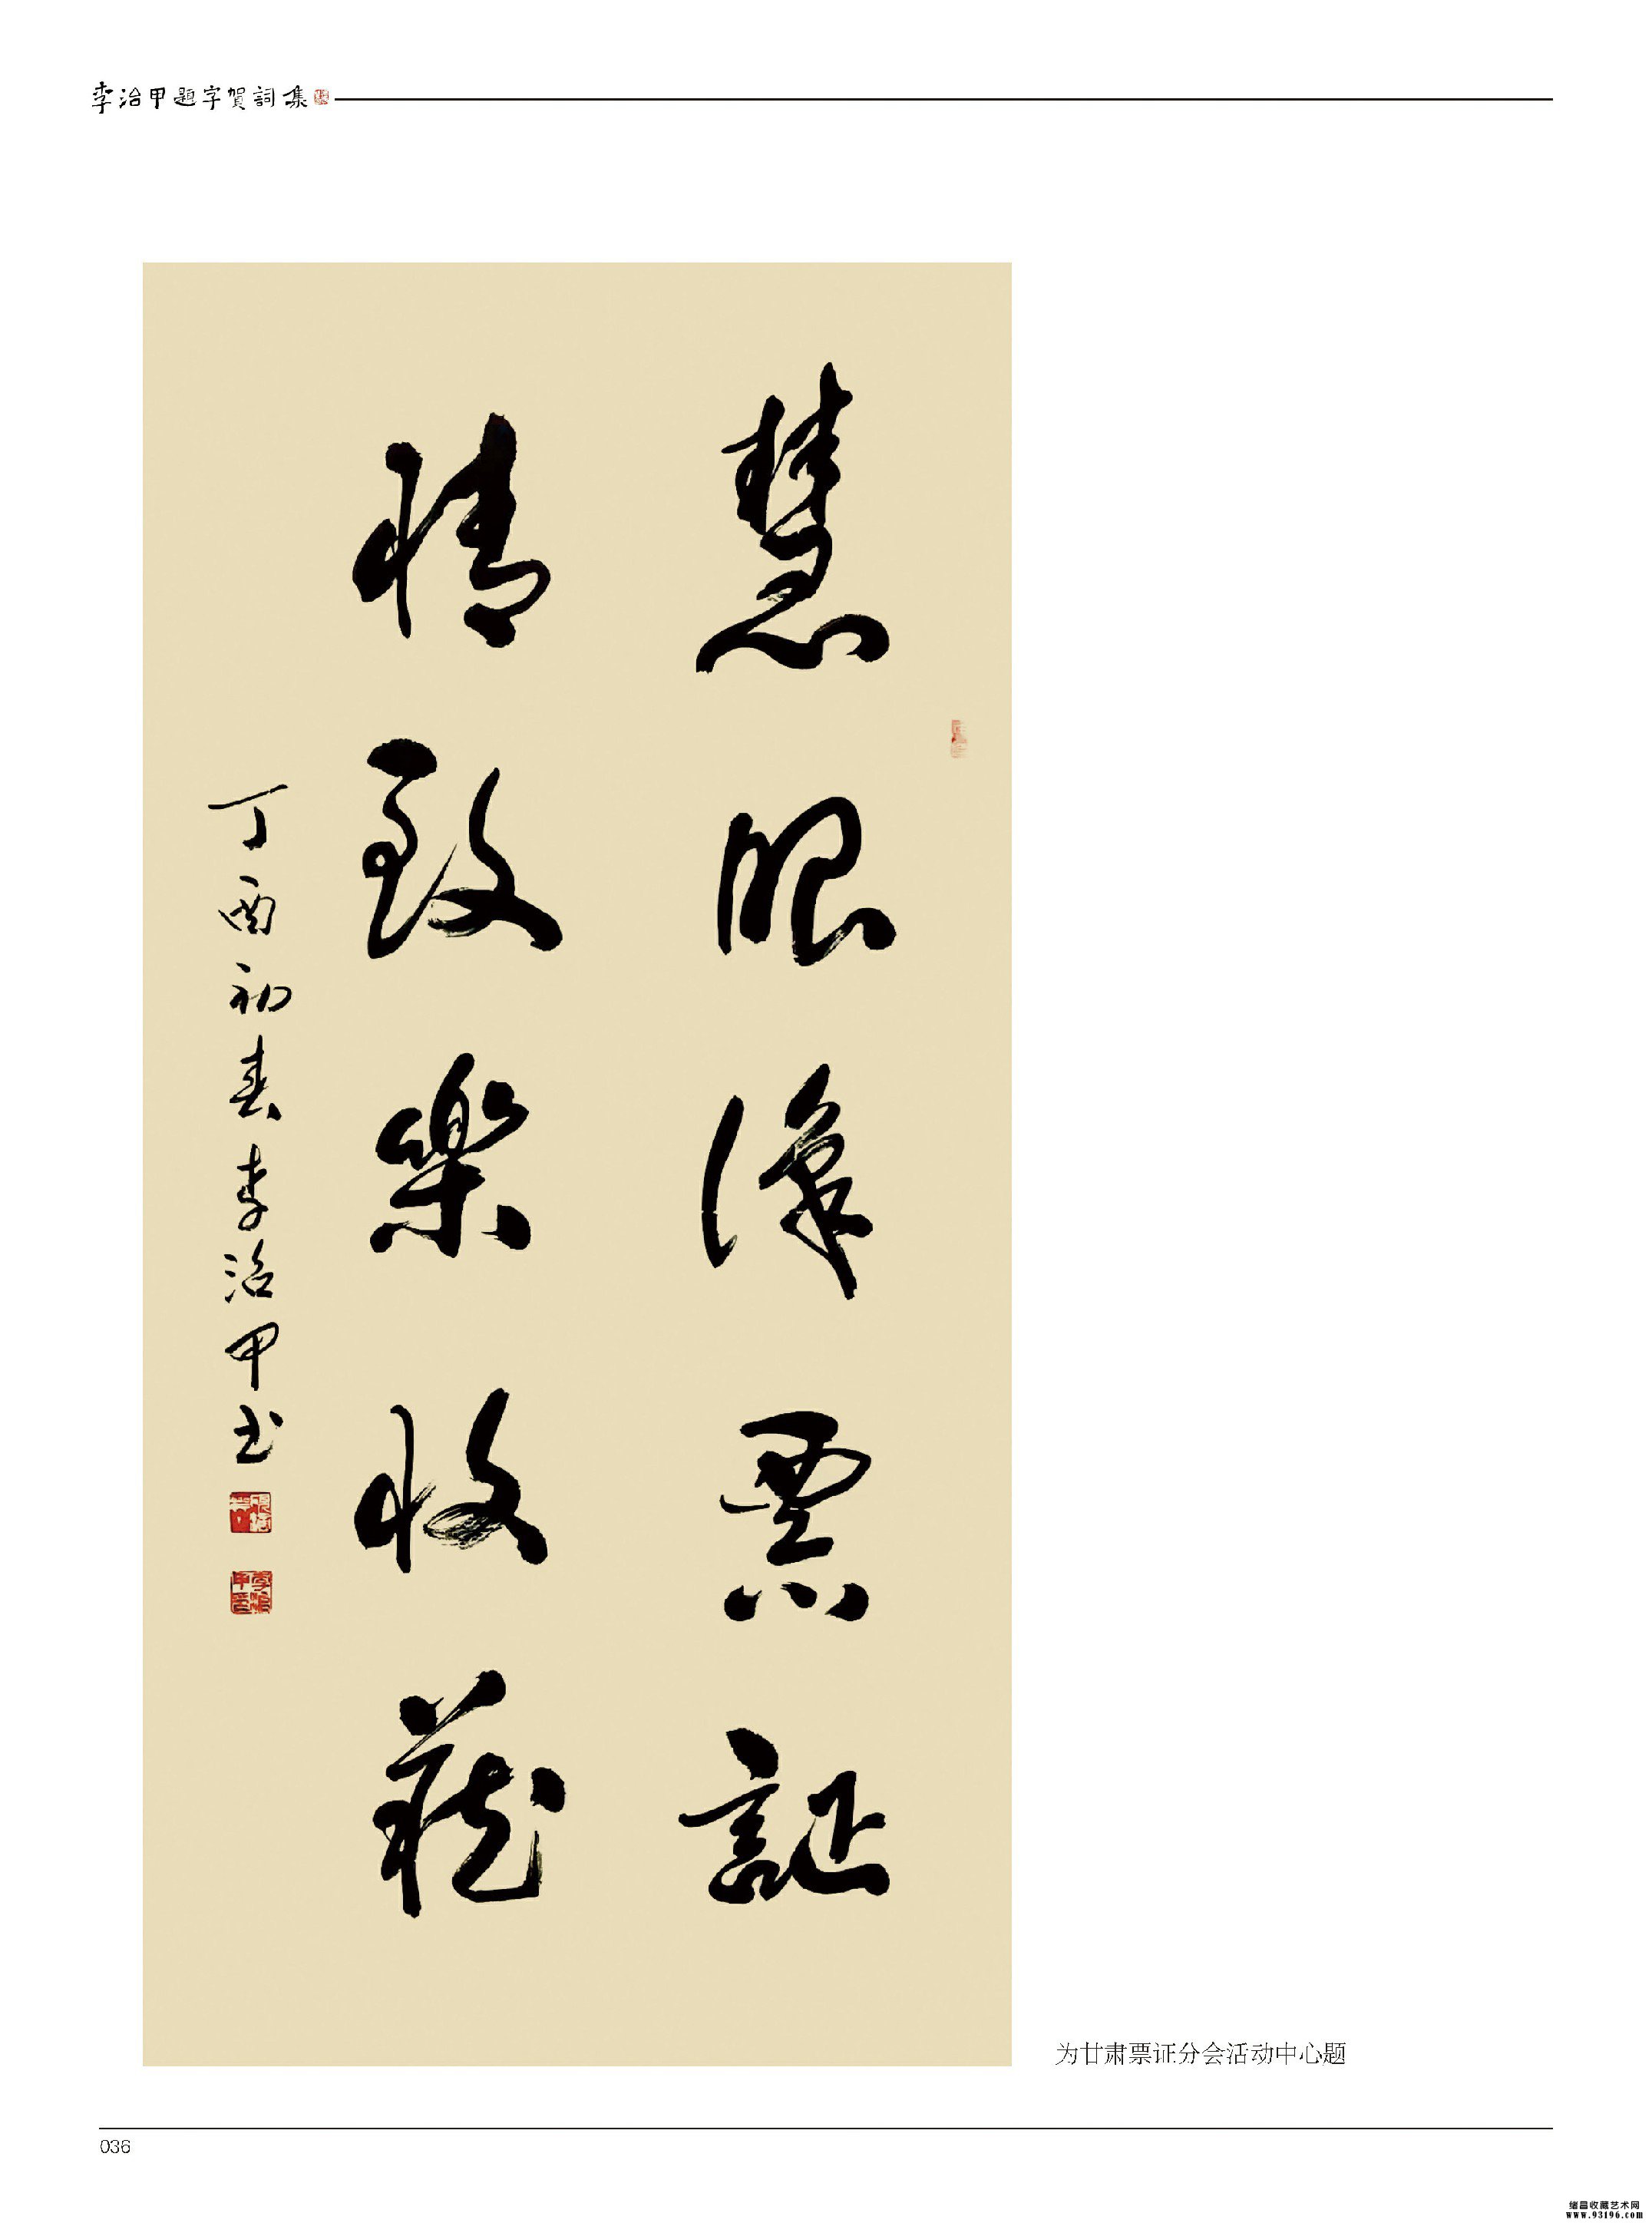 李治甲題字賀詞集
慧眼識票証
情致樂收藏
丁酉初春李治甲书
为甘肃票证分会活动中心题
036
绪昌收藏艺术网
www.93196.com